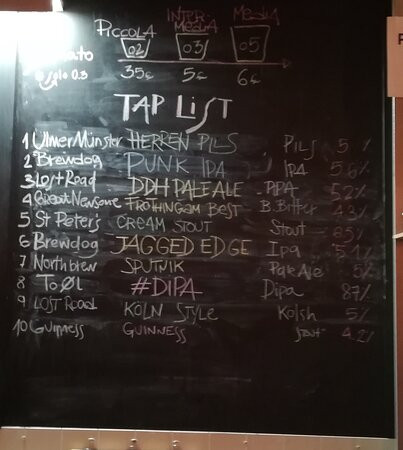 PICCOLA INTERMEDIA MEDIA
02 03 05
35€ 5€ 6€
TAP LIST
1 UlmerMünster HERREN PILS PILS 5 %
2 Brewdog PUNK IPA IPA 5.6%
3 Lost Road DDH PALE ALE APA 5.2%
4 Great Newsome FROTHINGHAM BEST B. Bitter 4.3%
5 St Peter's CREAM STOUT Stout 6.5%
6 Brewdog JAGGED EDGE Ipa
7 Northbrew SPUTNIK Pale Ale 5%
8 To ØL #DIPA Dipa 8.7%
9 LOST ROAD KÖLN STYLE Kölsh 5%
10 Guinness GUINNESS Stout 4.2%
P